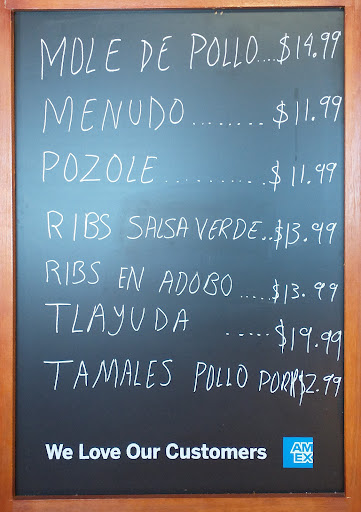 MOLE DE POLLO....$14.99
MENUDO ........ $11.99
POZOLE .......... $11.99
RIBS SALSA VERDE..$13.99
RIBS EN ADOBO .....$13.99
TLAYUDA .....$19.99
TAMALES POLLO PORK$2.99
We Love Our Customers AM EX